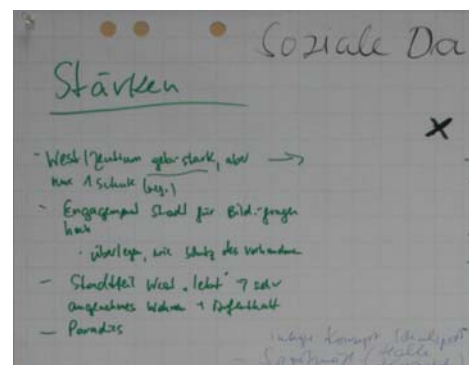 Soziale Da
Stärken
- West/Zentrum geb.-stark, aber →
nur 1 Schule
- Engagement Stadt für Bild.-fragen
hoch
· überlegen, wie Schutz des Vorhandenen
- Stadtteil West "lebt" → sehr
angenehmes Wohnen + Aufenthalt
- Paradies
Konzept